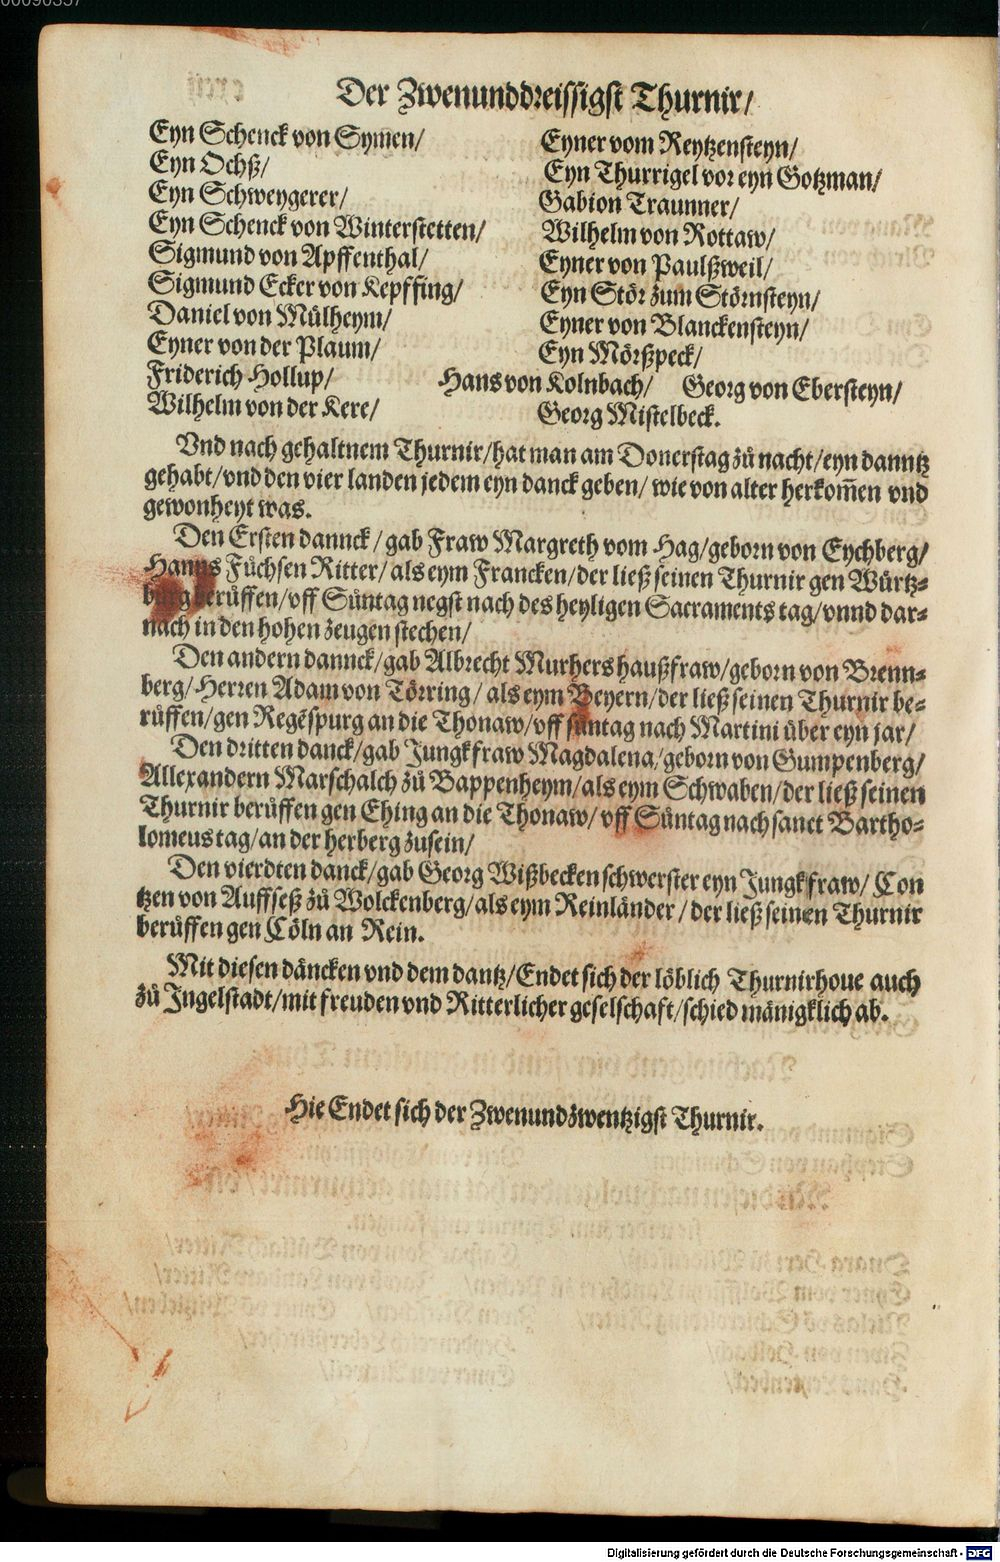 00090357
Der Zwenunddreissigst Thurnir/
Eyn Schenck von Symen/
Eyn Ochß/
Eyn Schweygerer/
Eyn Schenck von Winterstetten/
Sigmund von Apffenthal/
Sigmund Ecker von Kepffing/
Daniel von Mülheym/
Eyner von der Plaum/
Friderich Hollup/
Wilhelm von der Kere/
Eyner vom Reytzensteyn/
Eyn Thurrigel vor eyn Gotzman/
Gabion Traunner/
Wilhelm von Rottaw/
Eyner von Paulßweil/
Eyn Stör zum Störnsteyn/
Eyner von Blanckensteyn/
Eyn Mörßpeck/
Hans von Kolnbach/ Georg von Ebersteyn/
Georg Mistelbeck.
Vnd nach gehaltnem Thurnir/hat man am Donerstag zů nacht/eyn danntz
gehabt/vnd den vier landen jedem eyn danck geben/ wie von alter herkom̄en vnd
gewonheyt was.
Den Ersten dannck/gab Fraw Margreth vom Hag/geborn von Eychberg/
Hanns Füchsen Ritter/als eym Francken/der ließ seinen Thurnir gen Würtz-
burg berůffen/vff Suntag negst nach des heyligen Sacraments tag/vnnd dar-
nach in den hohen zeugen stechen/
Den andern dannck/gab Albrecht Murhers haußfraw/geborn von Brenn-
berg/Herren Adam von Törring/ als eym Beyern/der ließ seinen Thurnir be-
růffen/gen Regēspurg an die Thonaw/vff suntag nach Martini über eyn jar/
Den dritten danck/gab Jungkfraw Magdalena/geborn von Gumpenberg/
Allexandern Marschalch zů Bappenheym/als eym Schwaben/der ließ seinen
Thurnir berůffen gen Ehing an die Thonaw/ vff Suntag nach sanct Bartho-
lomeus tag/an der herberg zusein/
Den vierdten danck/gab Georg Wißbecken schwerster eyn Jungkfraw/ Con
tzen von Auffseß zů Wolckenberg/als eym Reinländer/der ließ seinen Thurnir
berůffen gen Cöln an Rein.
Mit diesen däncken vnd dem dantz/Endet sich der löblich Thurnirhoue auch
zů Ingelstadt/mit freuden vnd Ritterlicher geselschaft/schied mänigklich ab.
Hie Endet sich der Zwenundzwentzigst Thurnir.
Digitalisierung gefördert durch die Deutsche Forschungsgemeinschaft - DFG